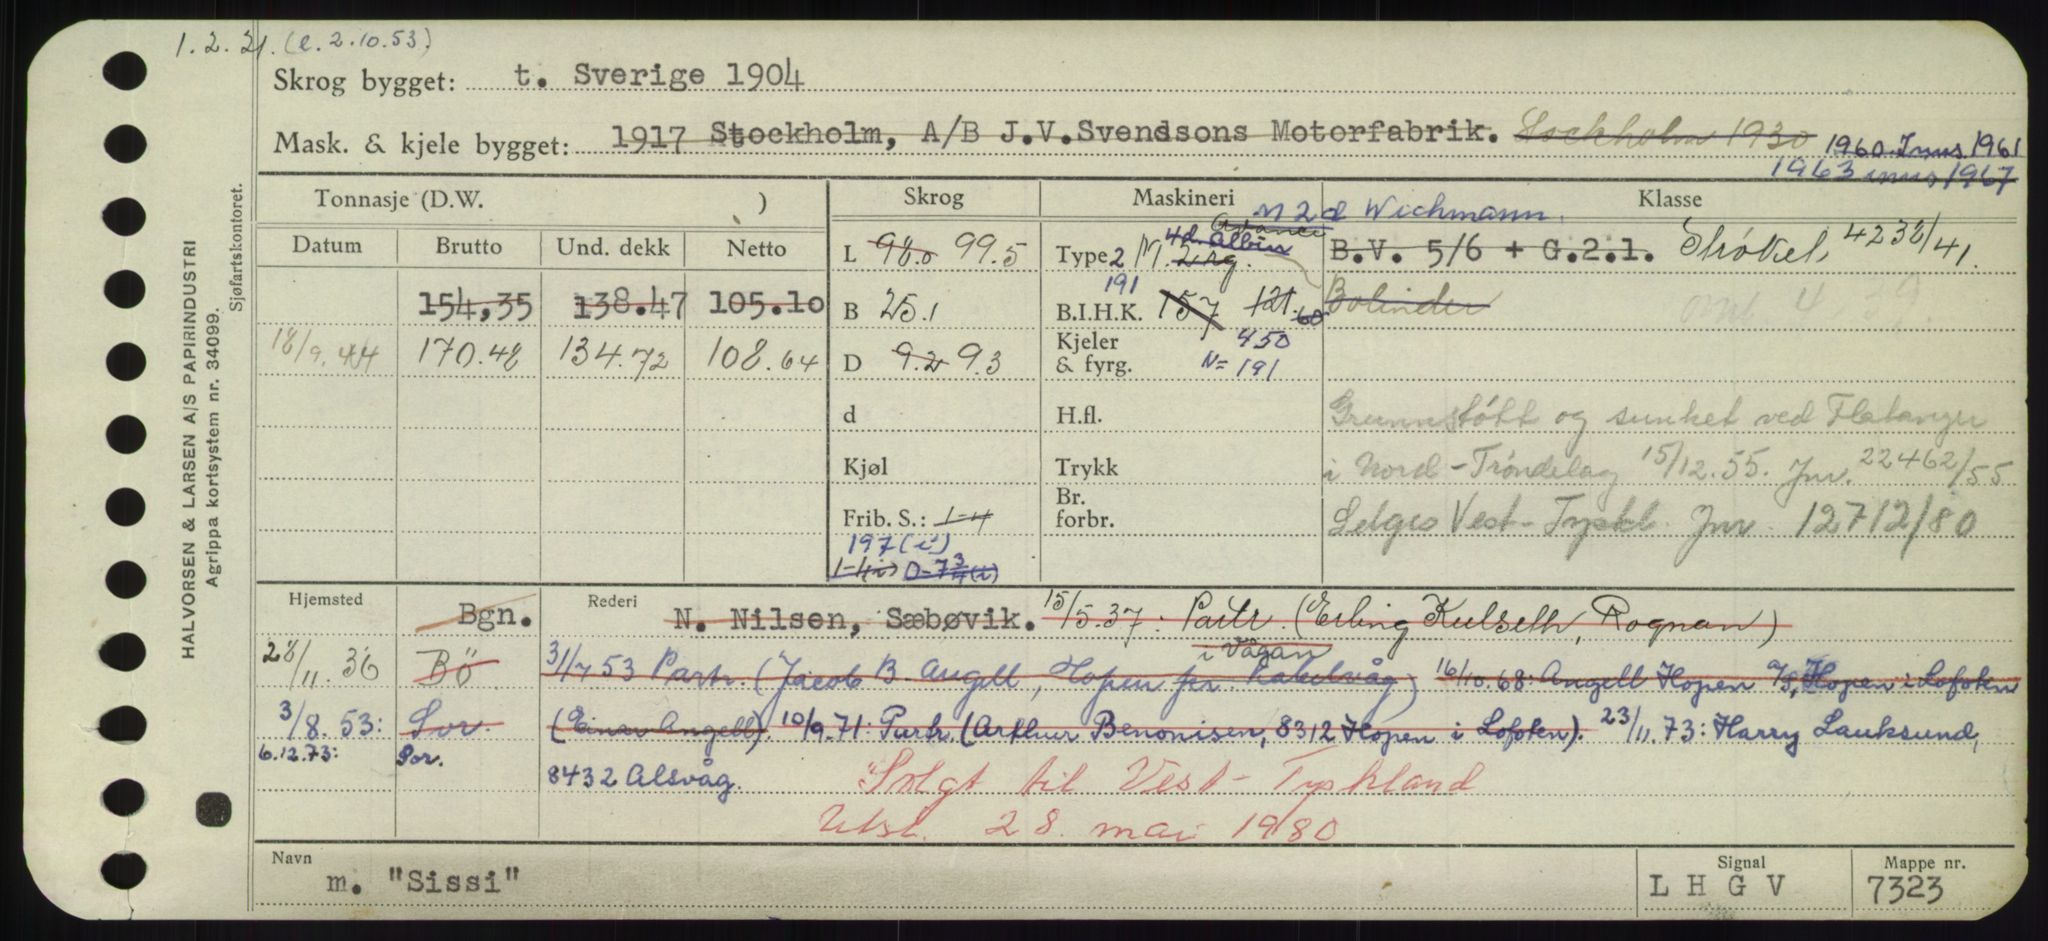 1.2.21. (e. 2.10.53)
Skrog bygget: t. Sverige 1904
Mask. & kjele bygget: 1917 Stockholm, A/B J.V.Svendsons Motorfabrik. Stockholm 1930 1960 Inns. 1961
1963 inns 1967
Tonnasje (D.W. ) Skrog Maskineri Klasse
M 2 d Wichmann.
Datum Brutto Und. dekk Netto
L 98.0 99.5 Type 2 M. 2 rg. 4 d. Albin Avance B.V. 5/6 + G.2.1. Strøket, 4232/41.
154,35 138.47 105.10 B 25.1 B.I.H.K. 191 157 121. 60 Bolinder
18/9.44 170.48 134.72 108.64 D 9.2 9.3 Kjeler & fyrg. 450 N= 191
d H.fl. Grunnstött og sunket ved Flatanger
Kjøl Trykk i Nord-Tröndelag 15/12.55. Jnr. 22462/55
Frib. S.: 1-4 Br. forbr. Selges Vest-Tyskl. Jnr. 12712/80
197 (i)
1-4(i) 0-7 3/4(i)
Hjemsted Bgn. Rederi N. Nilsen, Sæbøvik. 15/5.37: Partr. (Erling Kulseth, Rognan)
i Vågan
28/11.36 Bö 31/7 53 Partr. (Jacob B. Angell, Hopen pr. Kabelvåg) 16/10.68: Angell Hopen A/S, Hopen i Lofoten
3/8.53: Sor. (Einar Angell). 10/9.71: Partr. (Arthur Benonisen, 8312 Hopen i Lofoten). 23/11.73: Harry Lauksund,
6.12.73: Sor. 8432 Alsvåg. Solgt til Vest-Tyskland
Utsl. 28. mai 1980
Navn m. "Sissi" Signal L H G V Mappe nr. 7323
HALVORSEN & LARSEN A/S PAPIRINDUSTRI
Agrippa kortsystem nr. 34099.
Sjøfartskontoret.